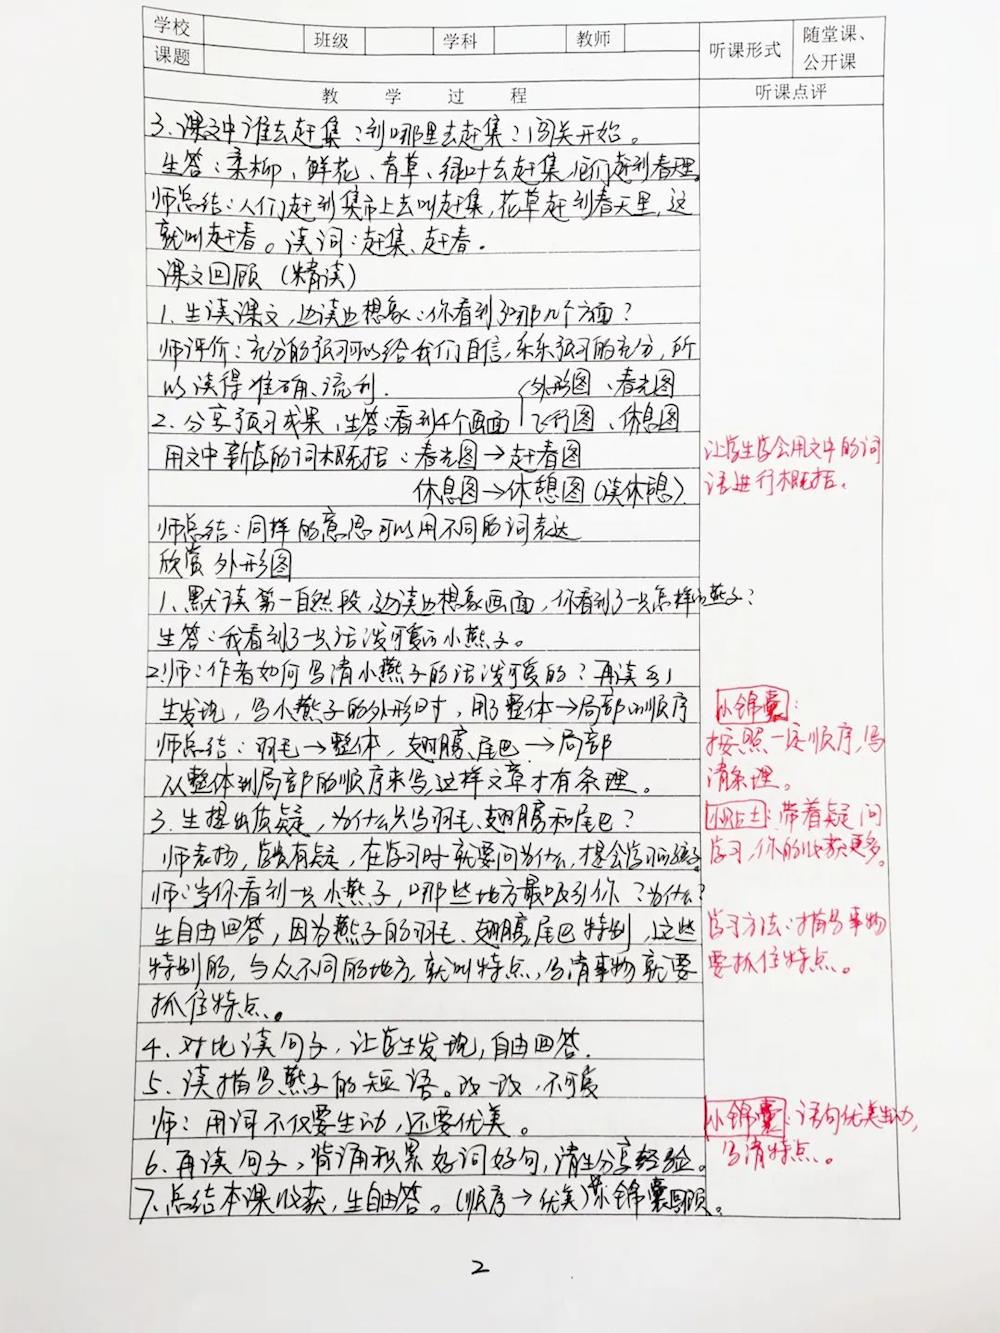 学校 班级 学科 教师 听课形式 随堂课、
课题 公开课
教 学 过 程 听课点评
3、课文中谁去赶集？到哪里去赶集？闯关开始。
生答：柔柳、鲜花、青草、绿叶去赶集,他们赶到春理。
师总结：人们赶到集市上去叫赶集,花草赶到春天里,这
就叫赶春。读词：赶集、赶春.
课文回顾（精读）
1、生读课文,边读边想象：你看到了那几个方面？
师评价：充分的预习可以给我们自信,乐乐预习的充分,所
以读得准确、流利. 外形图、春光图
2、分享预习成果,生答:看到4个画面 飞行图、休息图
用文中新学的词概括：春光图→赶春图
让学生学会用文中的词
语进行概括.
休息图→休憩图(读休憩).
师总结：同样的意思可以用不同的词表达
欣赏外形图
1、默读第一自然段,边读边想象画面,你看到了一只怎样的燕子？
生答：我看到了一只活泼可爱的小燕子。
2.师：作者如何写清小燕子的活泼可爱的？再读
生发现,写小燕子的外形时,用了整体→局部的顺序
小锦囊：
师总结：羽毛→整体,翅膀、尾巴→局部
按照一定顺序,写
从整体到局部的顺序来写,这样文章才有条理。
清条理。
3、生提出质疑,为什么只写羽毛、翅膀和尾巴？
小贴士：带着疑问
师表扬,学贵有疑,在学习时就要问为什么,想会学习的孩子.
学习,你的收获更多。
师:当你看到一只小燕子,哪些地方最吸引你？为什么？
生自由回答,因为燕子的羽毛、翅膀,尾巴特别,这些
学习方法：描写事物
特别的,与众不同的地方,就叫特点,写清事物就要
要抓住特点。
抓住特点。
4、对比读句子,让学生发现,自由回答.
5、读描写燕子的短语。改一改,不可爱
师：用词不仅要生动,还要优美。
小锦囊：语句优美生动,
写清特点。
6、再读句子,背诵积累好词好句,请生分享经验。
7、总结本课收获,生自由答。(顺序→优美)小锦囊回顾。
2